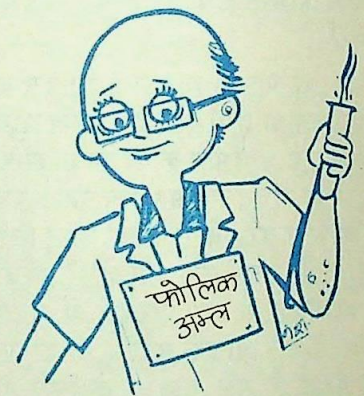 फोलिक
अम्ल